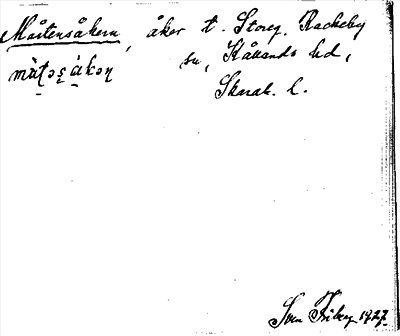 Mårtensåkern, åker t. Storeg. Rackeby
sn, Kållands hd,
Skarab. l.
màtǝʂ àkǝɳ
Sven Friberg 1927.